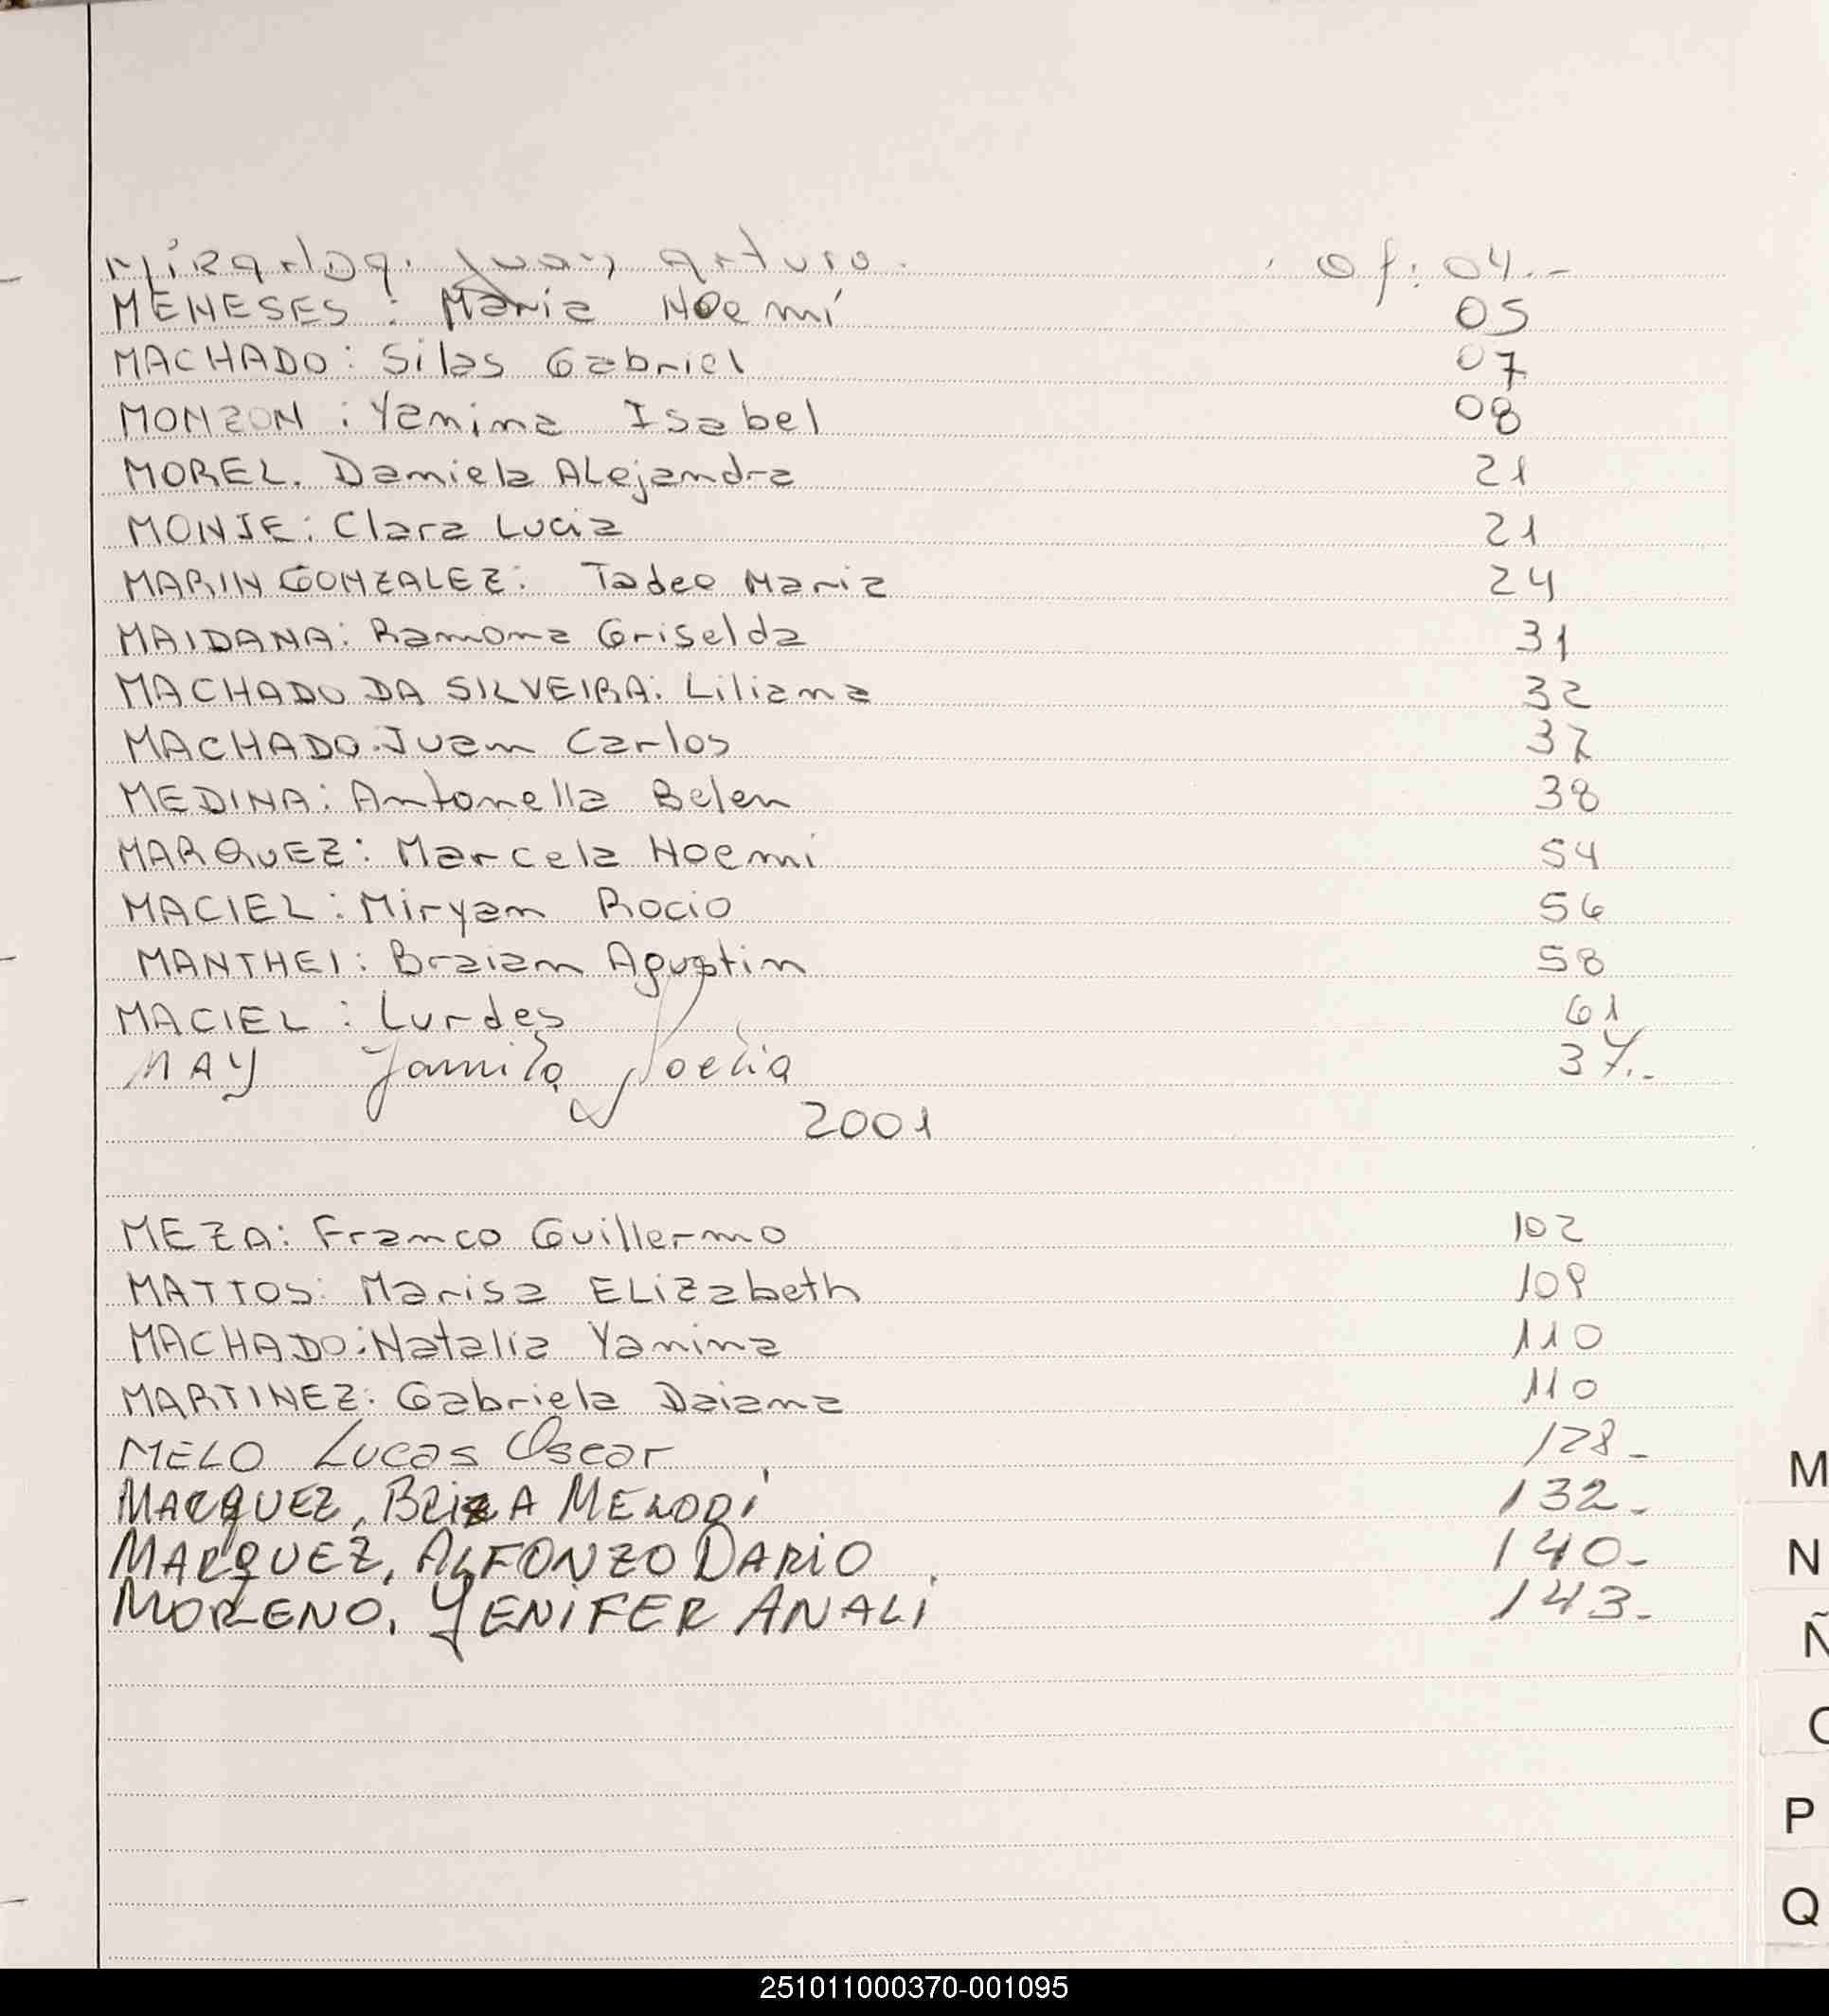 Miranda. Juan Arturo. of: 04.-
MENESES: Maria Noemí 05
MACHADO: Silas Gabriel 07
MONZON: Yanina Isabel 08
MOREL. Daniela Alejandra 21
MONJE: Clara Lucia 21
MARIN GONZALEZ: Tadeo Maria 24
MAIDANA: Ramona Griselda 31
MACHADO DA SILVEIRA: Liliana 32
MACHADO. Juan Carlos 37
MEDINA: Antonella Belen 38
MARQUEZ: Marcela Noemi 54
MACIEL: Miryan Rocio 56
MANTHEI: Braian Agustin 58
MACIEL: Lurdes 61
MAY Jamila Noelia 37.-
2001
MEZA: Franco Guillermo 102
MATTOS: Marisa ELizabeth 109
MACHADO: Natalia Yanina 110
MARTINEZ: Gabriela Daiana 110
MELO Lucas Oscar 128-
MARQUEZ, BRIZA MELODÍ 132-
MARQUEZ, ALFONZO DARIO 140-
MORENO, YENIFER ANALÍ 143-
M
N
Ñ
O
P
Q
251011000370-001095